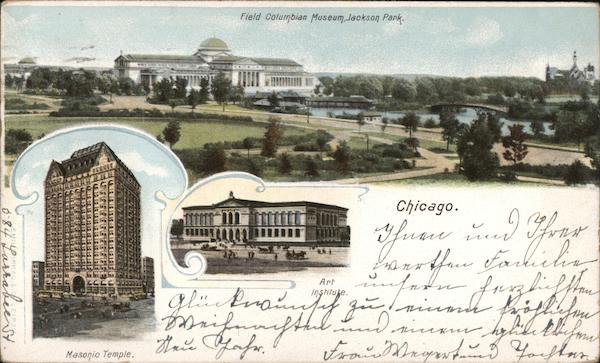 Field Columbian Museum, Jackson Park.
Chicago.
Ihnen und Ihrer
werthen Familie
unsern herzlichsten
Glückwunsch zu einem fröhlichen
Weihnachten und einem glücklichen
Neu Jahr.
Frau Wegert und Tochter
Art
Institute.
Masonic Temple.
684 Larrabee St